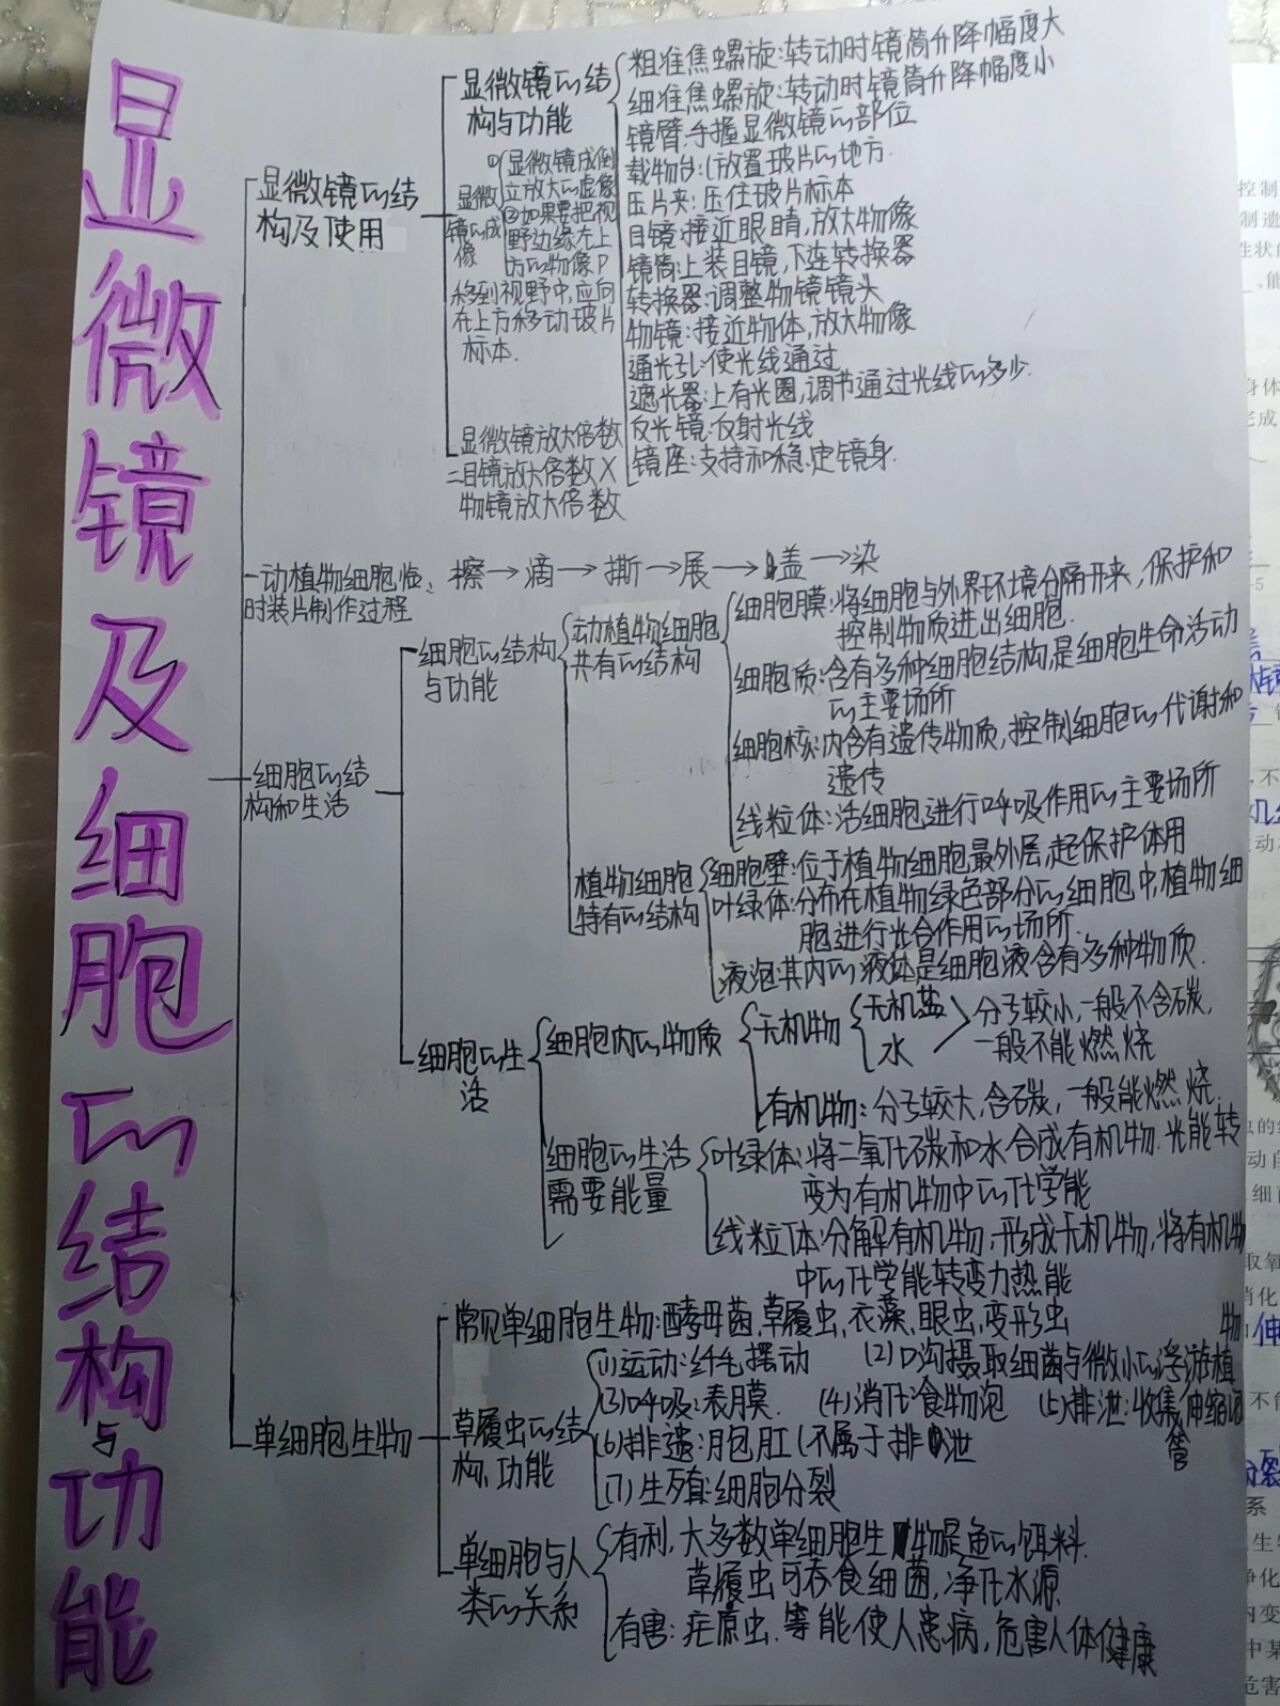 显微镜及细胞的结构与功能
显微镜的结
构及使用
显微镜的结
构与功能
粗准焦螺旋:转动时镜筒升降幅度大
细准焦螺旋:转动时镜筒升降幅度小
镜臂:手握显微镜的部位
载物台:(放置玻片的地方.
压片夹:压住玻片标本
目镜:接近眼睛,放大物像
镜筒:上装目镜,下连转换器
转换器:调整物镜镜头
物镜:接近物体,放大物像
通光孔:使光线通过
遮光器:上有光圈,调节通过光线的多少.
反光镜:反射光线
镜座:支持和稳定镜身.
显微
镜的成
像
①显微镜成倒
立放大的虚像
②如果要把视
野边缘左上
方的物像P
移到视野中,应向
左上方移动玻片
标本.
显微镜放大倍数
=目镜放大倍数×
物镜放大倍数
动植物细胞临
时装片制作过程
擦→滴→撕→展→盖→染
细胞的结
构和生活
细胞的结构
与功能
动植物细胞
共有的结构
细胞膜:将细胞与外界环境分隔开来,保护和
控制物质进出细胞.
细胞质:含有多种细胞结构,是细胞生命活动
的主要场所
细胞核:内含有遗传物质,控制细胞的代谢和
遗传
线粒体:活细胞进行呼吸作用的主要场所
植物细胞
特有的结构
细胞壁:位于植物细胞最外层,起保护体用
叶绿体:分布在植物绿色部分的细胞中,植物细
胞进行光合作用的场所.
液泡:其内的液体是细胞液含有多种物质.
细胞的生
活
细胞内的物质
无机物
无机盐
水
分子较小,一般不含碳,
一般不能燃烧
有机物:分子较大,含碳,一般能燃烧.
细胞的生活
需要能量
叶绿体:将二氧化碳和水合成有机物.光能转
变为有机物中的化学能
线粒体:分解有机物,形成无机物,将有机物
中的化学能转变力热能
单细胞生物
常见单细胞生物:酵母菌,草履虫,衣藻,眼虫,变形虫
草履虫的结
构、功能
(1)运动:纤毛摆动 (2)口沟摄取细菌与微小的浮游植
物
(3)呼吸:表膜. (4)消化:食物泡 (5)排泄:收集
管
伸缩泡
(6)排遗:胞肛(不属于排泄
(7)生殖:细胞分裂
单细胞与人
类的关系
有利,大多数单细胞生物是鱼的饵料.
草履虫可吞食细菌,净化水源
有害:疟原虫.等能使人患病,危害人体健康